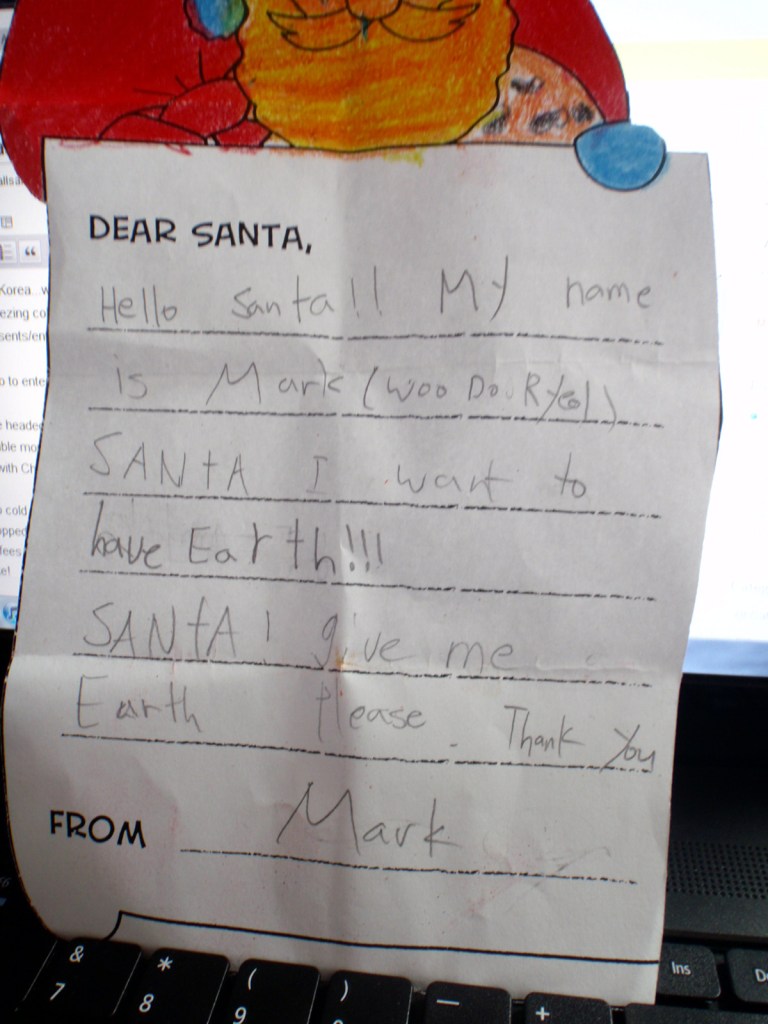 DEAR SANTA,
Hello Santa!! My name
is Mark (Woo Do. Ryeol)
SANtA I want to
have Earth!!!
SANtA! give me
Earth please. Thank You
FROM Mark
Korea...w
ezing co
sents/en
o to ente
e heade
ble mo
with Ch
o cold
opped
fees
et
& 7
* 8
( 9
)
—
+
Ins